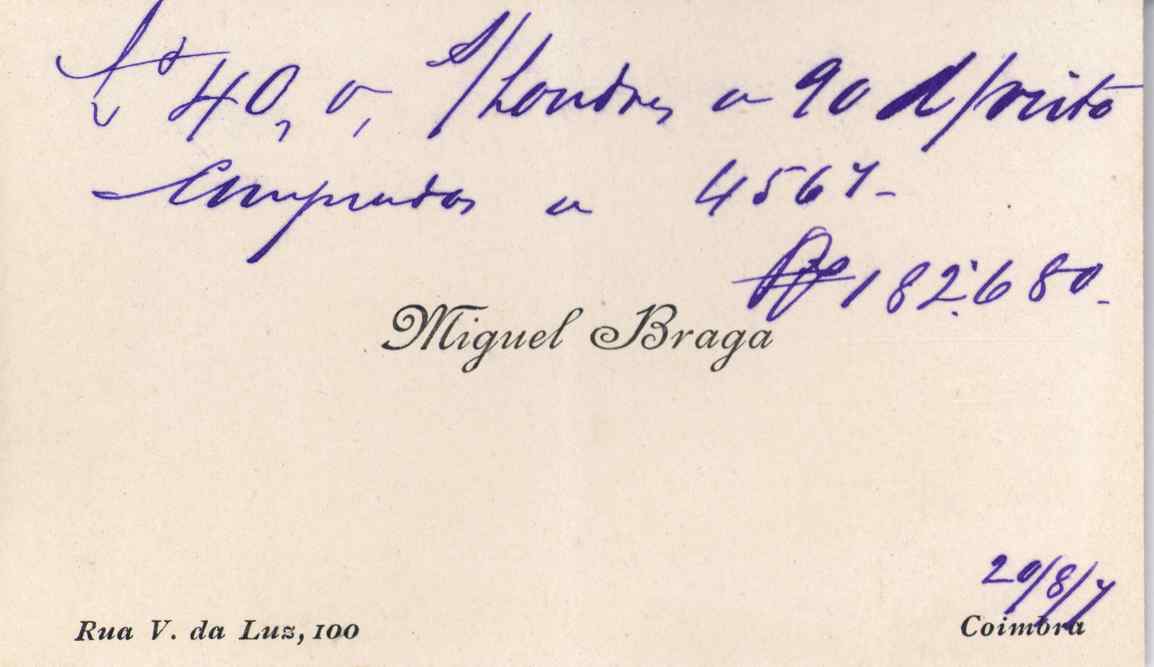 £s 40, 0, s/Londres a 90 d/vista
comprados a 4567-
Rs 182:680-
Miguel Braga
20/8/7
Rua V. da Luz, 100
Coimbra